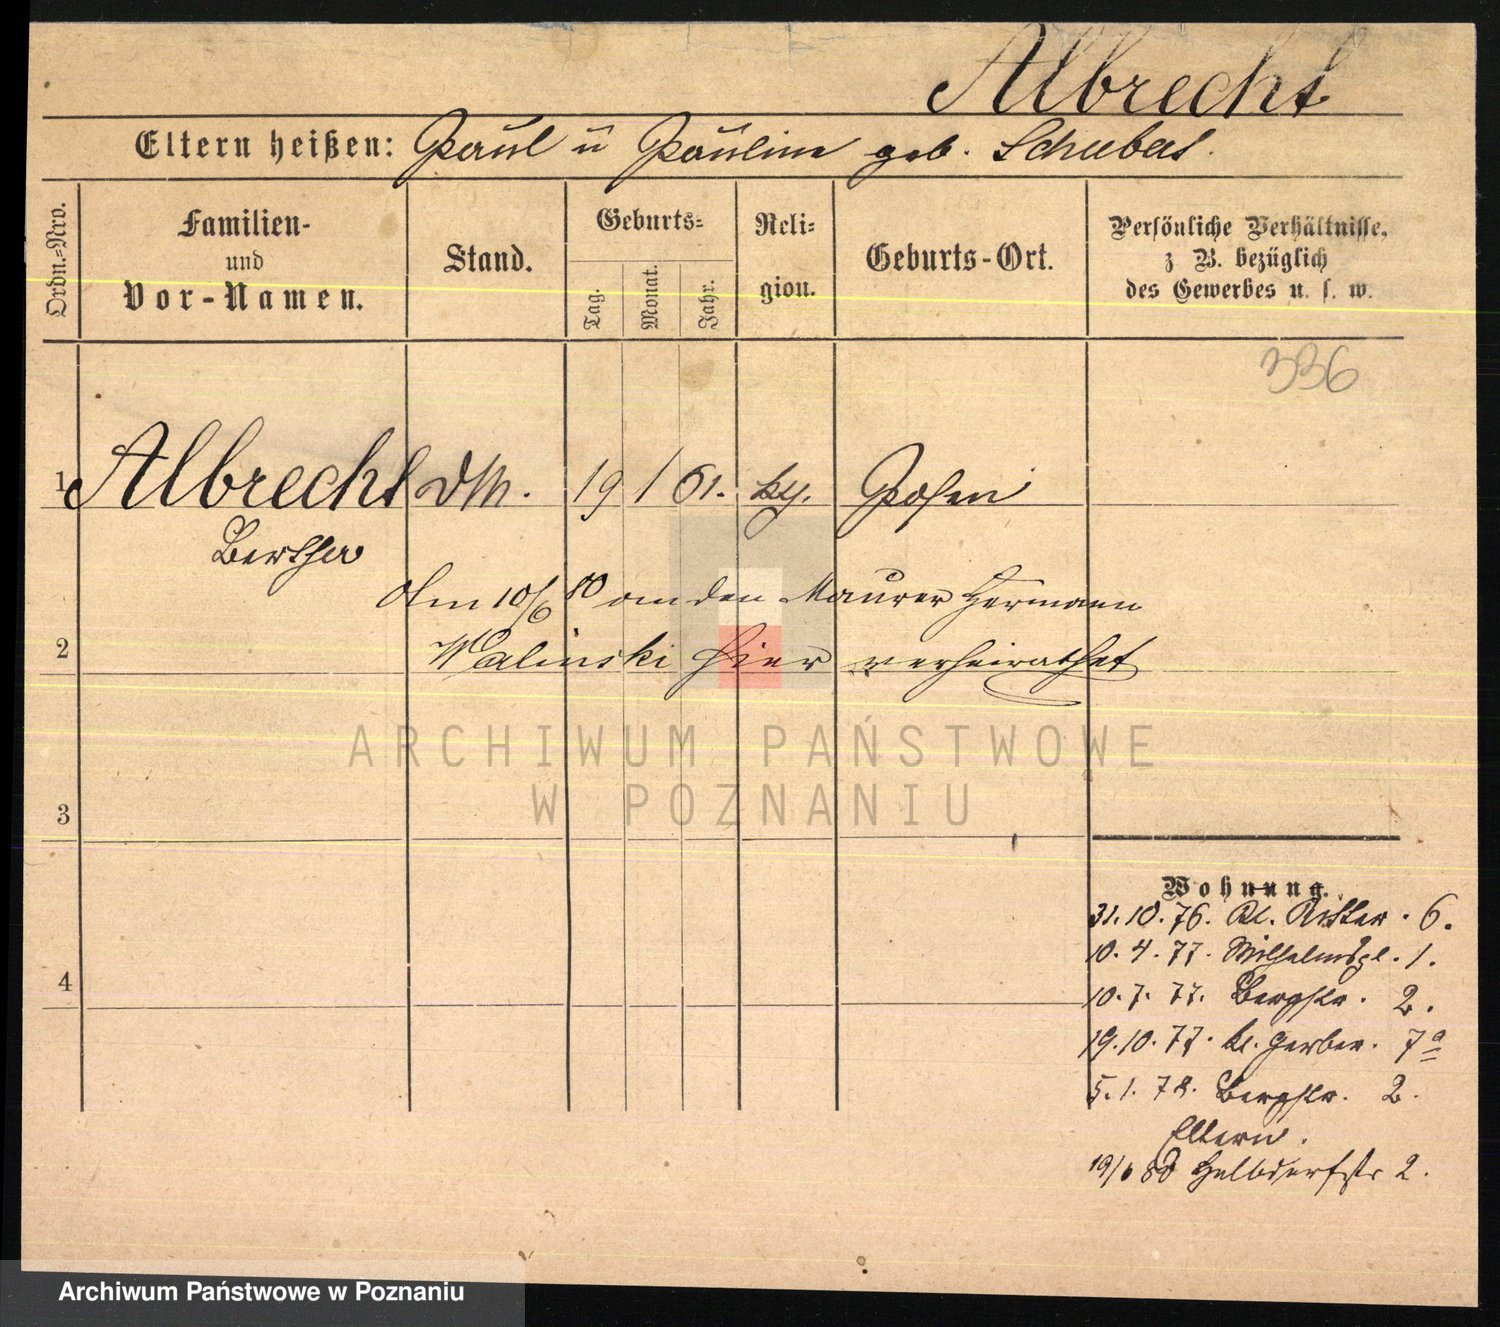 Albrecht
Eltern heißen: Paul u Pauline geb. Schubert.
Ordn.-Nro.
Familien-
und
Vor-Namen.
Stand.
Geburts-
Tag.
Monat.
Jahr.
Reli-
gion.
Geburts-Ort.
Persönliche Verhältnisse,
z B. bezüglich
des Gewerbes u. s. w.
336
1 Albrecht DM. 19 1 61. Posen
Bertha
Am 10/6 80 an den Maurer Hermann
2 Walinski hier verheirathet
3
4
Wohnung.
31.10.76. Kl. Ritter. 6.
10.4.77. Wilhelmspl. 1.
10.7.77. Bergstr. 2.
19.10.77. kl. Gerber. 7a
5.1.78. Bergstr. 2.
Eltern.
19/6 80 Halbdorfstr 2.
ARCHIWUM PAŃSTWOWE
W POZNANIU
Archiwum Państwowe w Poznaniu